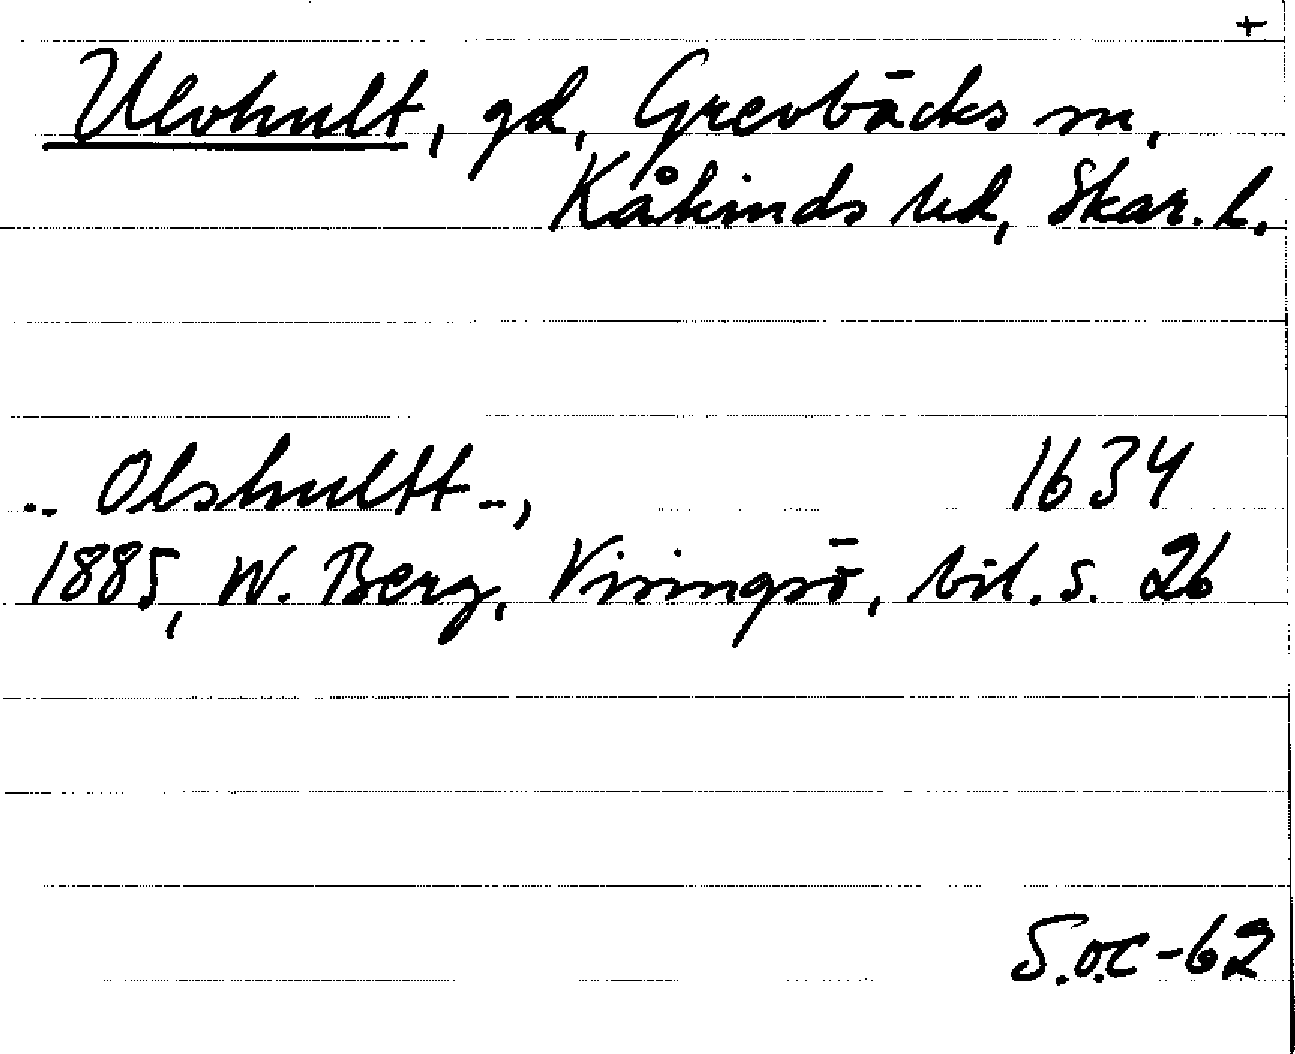 +
Ulvhult, gd, Grevbäcks sn,
Kåkinds hd, Skar. l.
.. Olshultt ..,          1634
1885, W. Berg, Visingsö, bil. s. 26
S.o.C -62